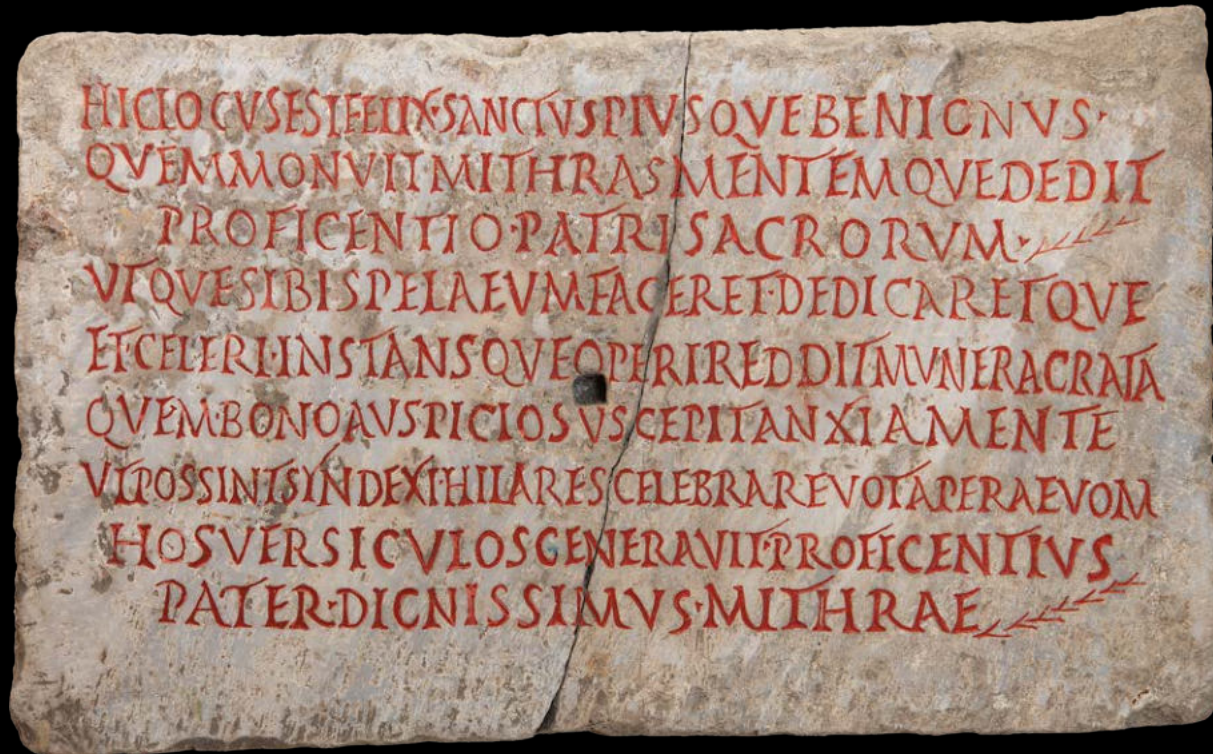 HIC LOCVS EST FELIX · SANCTVS PIVSQVE BENIGNVS ·
QVEM MONVIT MITHRAS MENTEMQVE DEDIT
PROFICENTIO · PATRI SACRORVM ·
VTQVE SIBI SPELAEVM FACERET · DEDICARETQVE
ET · CELERI · INSTANSQVE OPERI REDDIT MVNERA GRATA
QVEM · BONO AVSPICIO SVSCEPIT ANXIA MENTE
VT POSSINT SYNDEXI · HILARES CELEBRARE VOTA PER AEVOM
HOS VERSICVLOS GENERAVIT · PROFICENTIVS
PATER · DIGNISSIMVS · MITHRAE